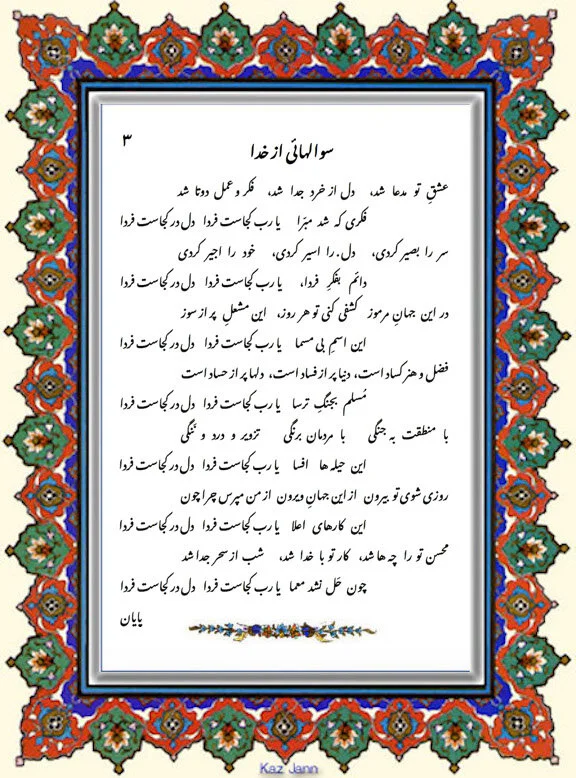 ۳
سوالهائی از خدا
عشقِ تو مدعا شد، دل از خرد جدا شد، فکر و عمل دوتا شد
فکری که شد مبرا یا رب کجاست فردا دل در کجاست فردا
سر را بصیر کردی، دل را اسیر کردی، خود را اجیر کردی
دائم بفکرِ فردا، یا رب کجاست فردا دل در کجاست فردا
در این جهانِ مرموز کشفی کنی تو هر روز، این مشعلِ پر از سوز
این اسمِ بی مسما یا رب کجاست فردا دل در کجاست فردا
فضل و هنر کساد است، دنیا پر از فساد است، دلها پر از حساد است
مُسلم بجنگِ ترسا یا رب کجاست فردا دل در کجاست فردا
با منطقت به جنگی با مردمان برنگی تزویر و درد و ننگی
این حیله ها افسا یا رب کجاست فردا دل در کجاست فردا
روزی شوی تو بیرون از این جهانِ ویرون از من مپرس چرا چون
این کارهای اعلا یا رب کجاست فردا دل در کجاست فردا
محسن تو را چه ها شد، کار تو با خدا شد، شب از سحر جدا شد
چون حَل نشد معما یا رب کجاست فردا دل در کجاست فردا
پایان
Kaz Jann